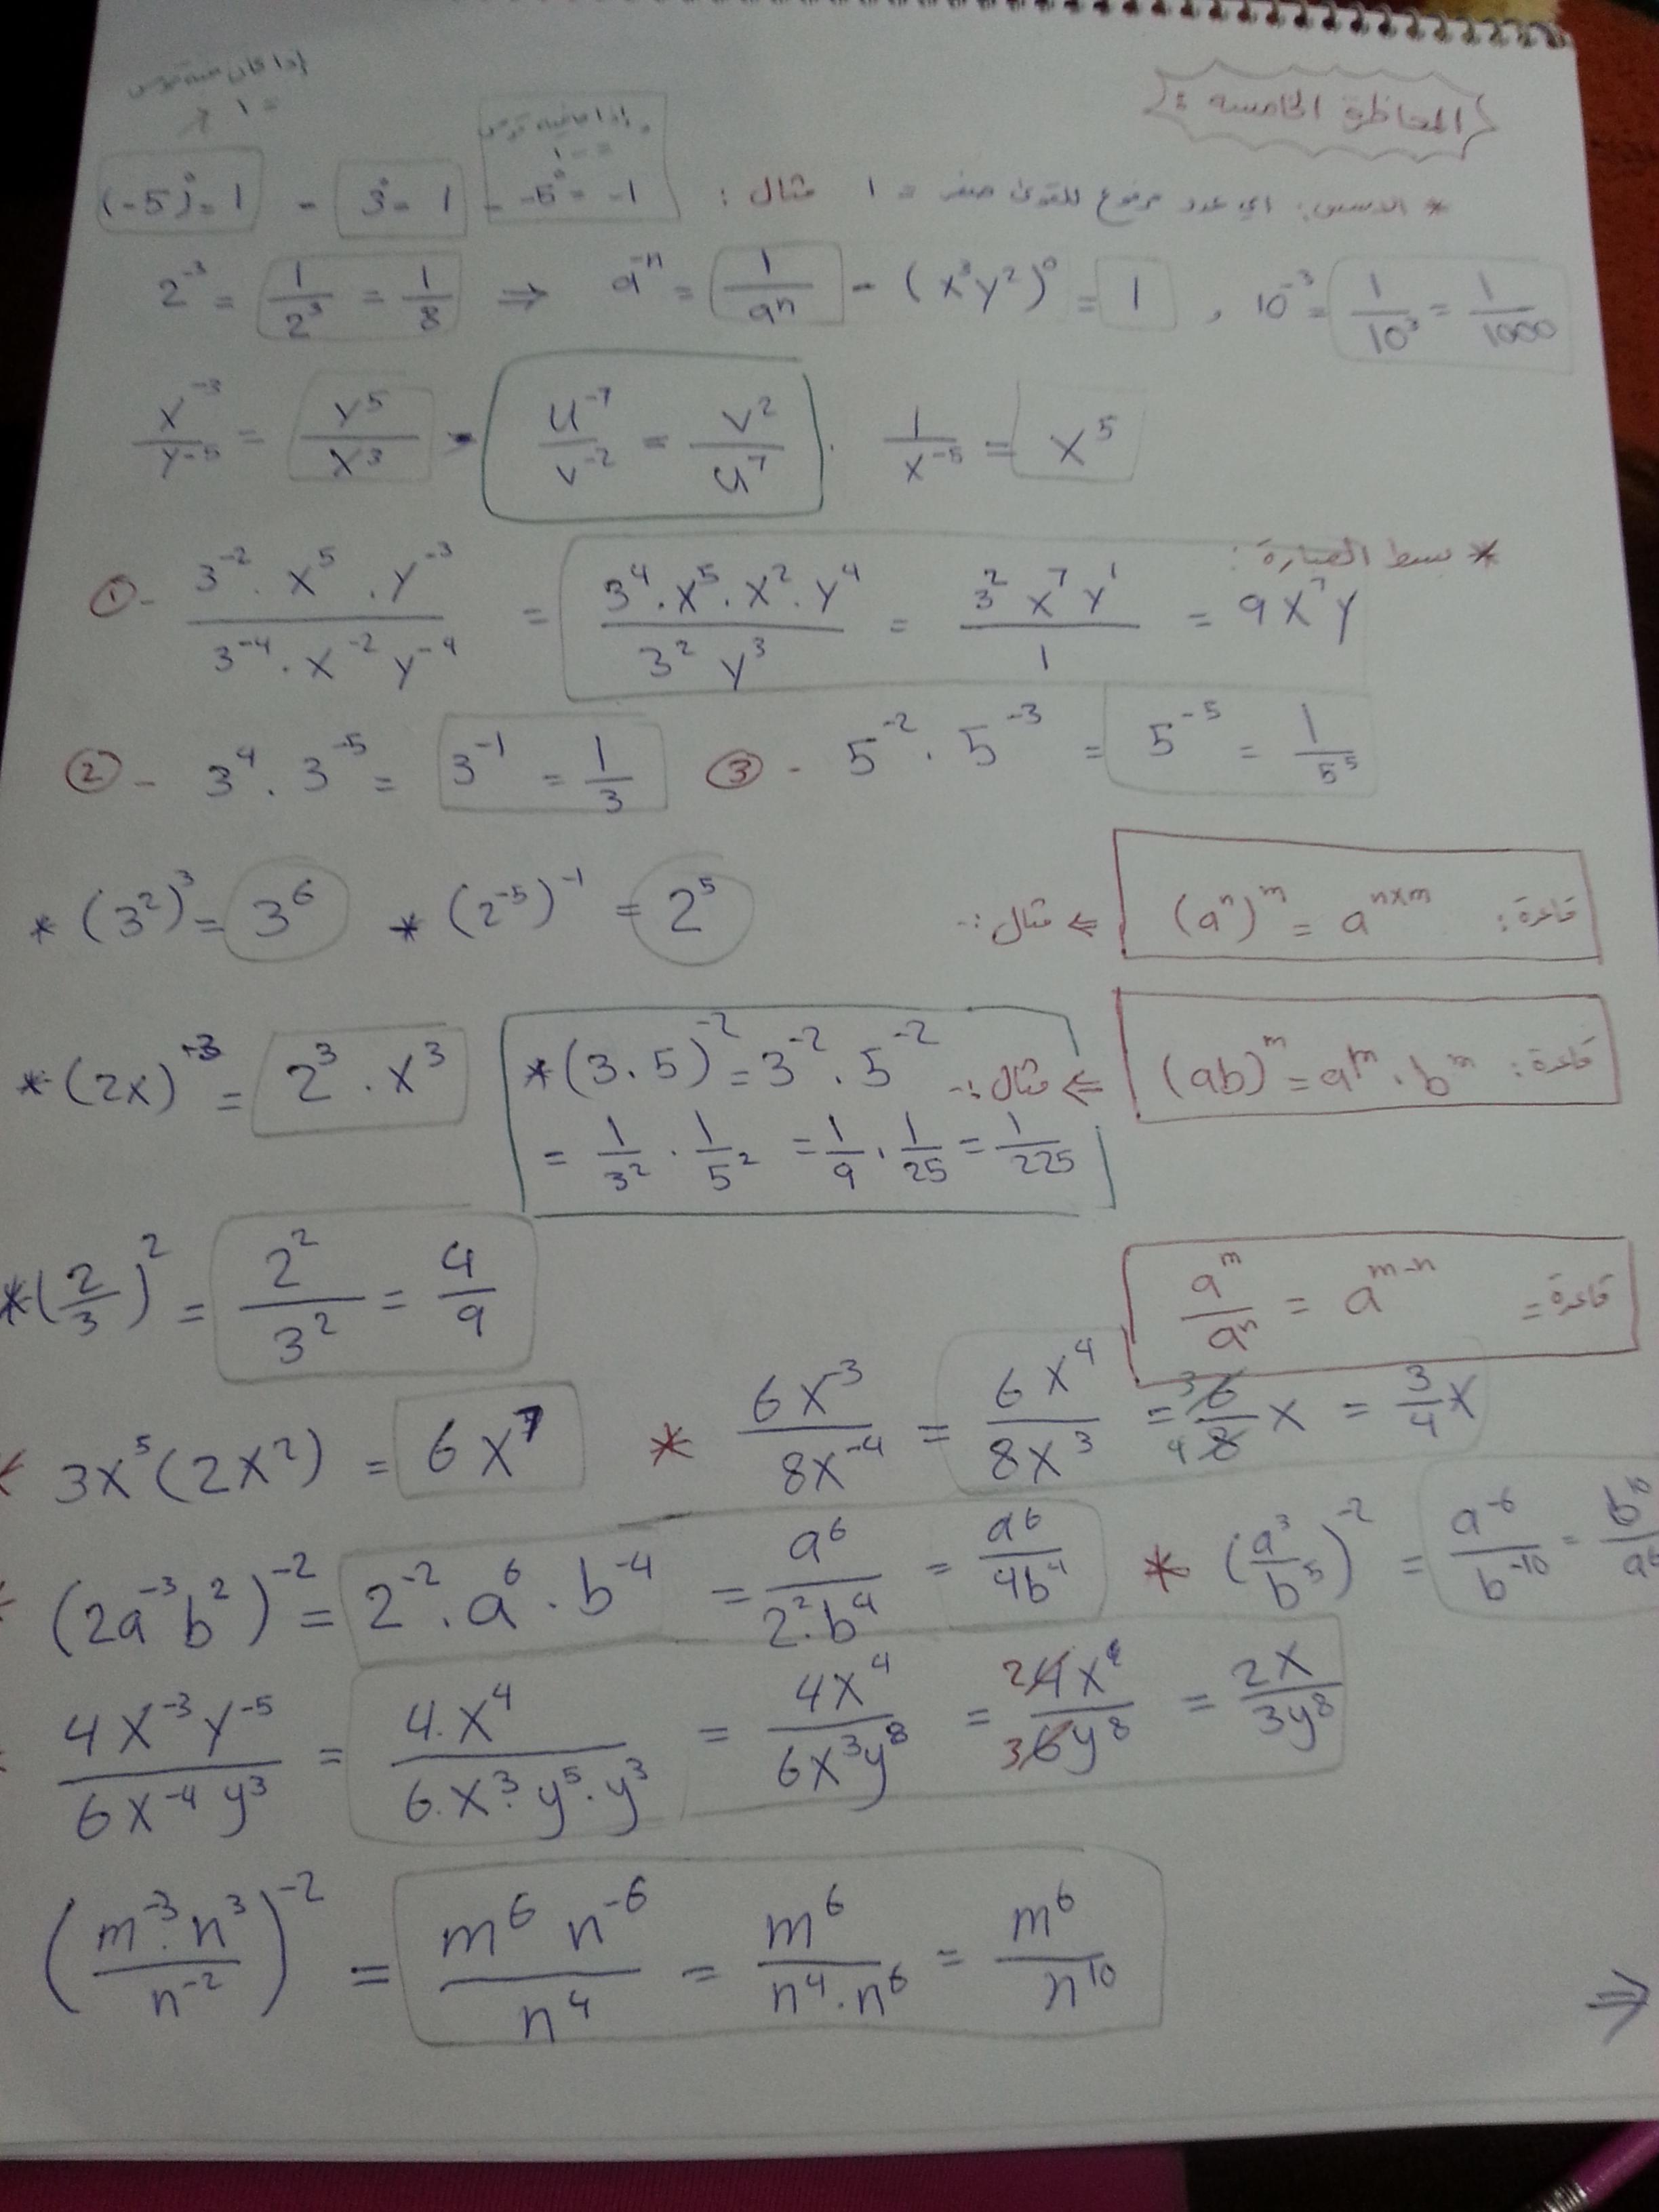 المحاظرة الخامسه :
إذا كان ضمنه قوس
= ١
= -١
* الاسس: اي عدد مرفوع للقوى صفر = ١ مثال : -5⁰ = -1 - 3⁰ = 1 - (-5)⁰ = 1
2⁻³ = 1/2³ = 1/8 ⇒ a⁻ⁿ = 1/aⁿ - (x³y²)⁰ = 1 , 10⁻³ = 1/10³ = 1/1000
x⁻³/y⁻⁵ = y⁵/x³ - u⁻⁷/v⁻² = v²/u⁷ . 1/x⁻⁵ = x⁵
* بسط العبارة :
① - 3⁻² . x⁵ . y⁻³ / 3⁻⁴ . x⁻² y⁻⁴ = 3⁴ . x⁵ . x² . y⁴ / 3² y³ = 3² x⁷ y¹ / 1 = 9x⁷y
② - 3⁴ . 3⁻⁵ = 3⁻¹ = 1/3 ③ - 5⁻² . 5⁻³ = 5⁻⁵ = 1/5⁵
قاعدة : (aⁿ)ᵐ = aⁿˣᵐ ⇐ مثال :-
* (3²)³ = 3⁶ * (2⁻⁵)⁻¹ = 2⁵
قاعدة : (ab)ᵐ = aᵐ . bᵐ ⇐ مثال :-
* (2x)³ = 2³ . x³ * (3 . 5)⁻² = 3⁻² . 5⁻²
= 1/3² . 1/5² = 1/9 . 1/25 = 1/225
* (2/3)² = 2²/3² = 4/9
قاعدة = aᵐ/aⁿ = aᵐ⁻ⁿ
* 3x⁵(2x²) = 6x⁷ * 6x⁻³/8x⁻⁴ = 6x⁴/8x³ = 3 6/4 8 x = 3/4 x
* (2a⁻³b²)⁻² = 2⁻² . a⁶ . b⁻⁴ = a⁶/2² . b⁴ = a⁶/4b⁴ * (a³/b⁵)⁻² = a⁻⁶/b⁻¹⁰ = b¹⁰/a⁶
4x⁻³y⁻⁵/6x⁻⁴y³ = 4 . x⁴/6 . x³ . y⁵ . y³ = 4x⁴/6x³y⁸ = 2 4x/3 6y⁸ = 2x/3y⁸
(m⁻³ . n³/n⁻²)⁻² = m⁶ n⁻⁶/n⁴ = m⁶/n⁴ . n⁶ = m⁶/n¹⁰
⇒